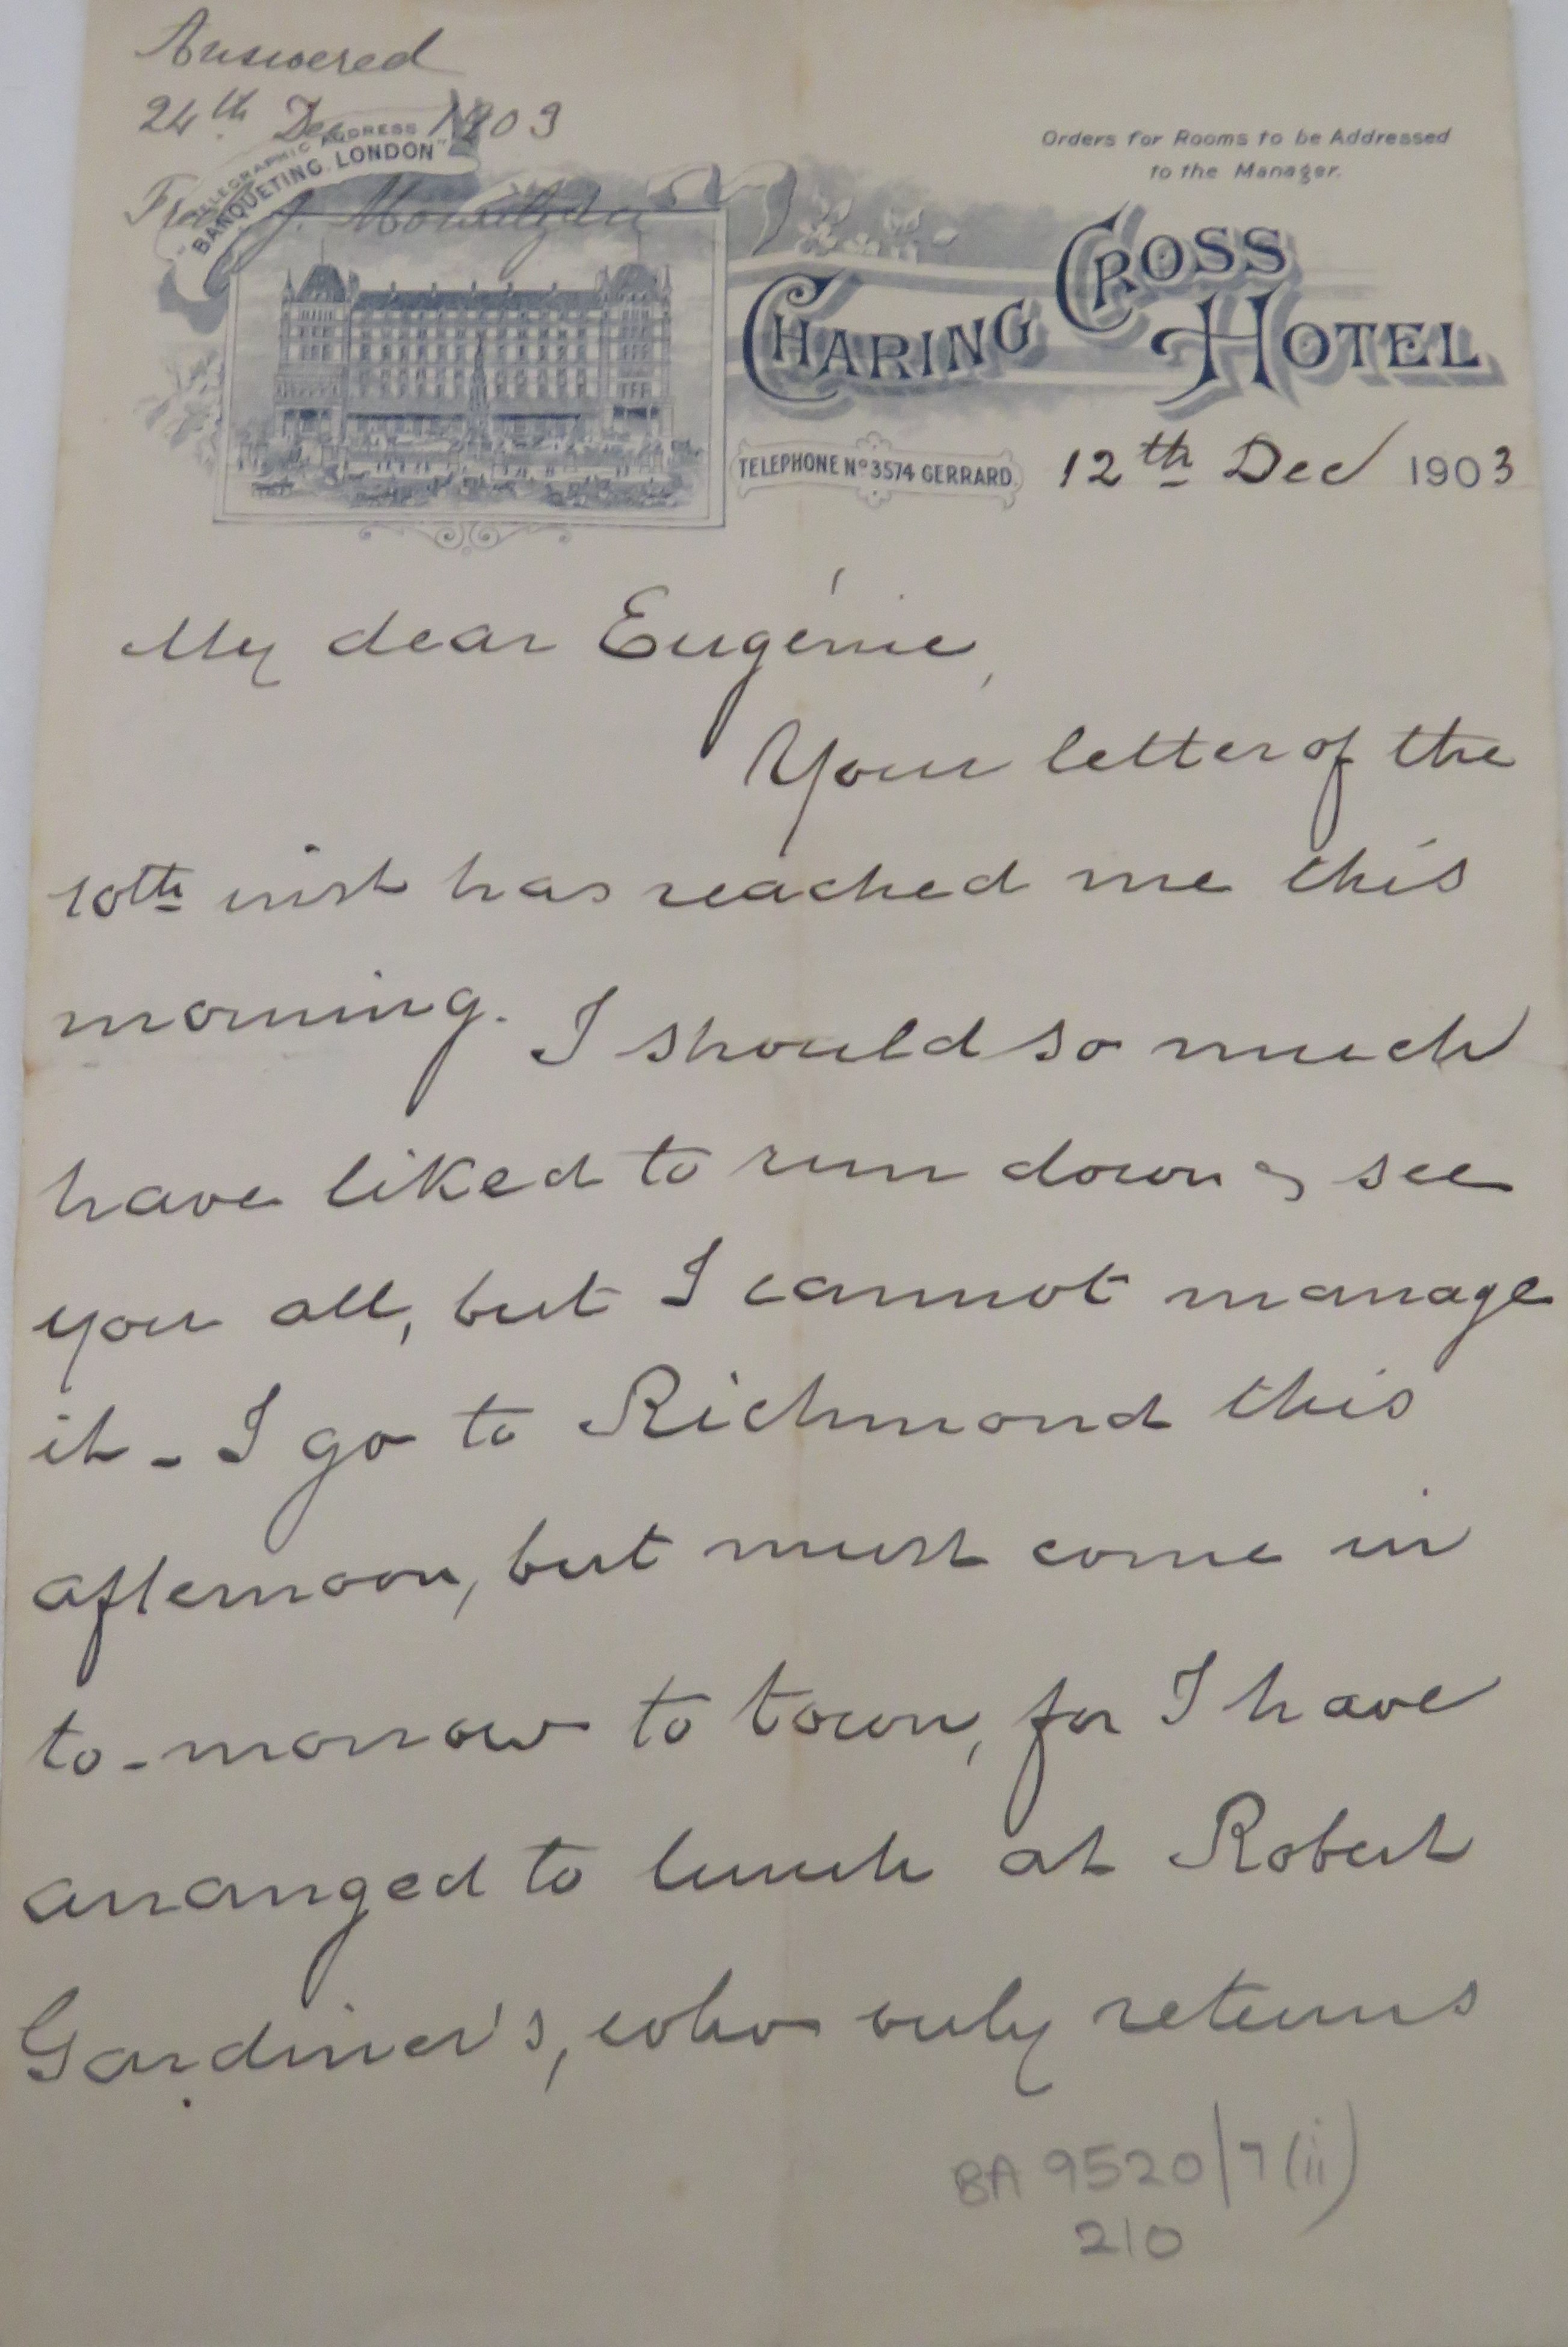 Answered
24th Dec 1903
TELEGRAPHIC ADDRESS
"BANQUETING. LONDON"
J.
Orders for Rooms to be Addressed
to the Manager.
CHARING CROSS HOTEL
TELEPHONE No 3574 GERRARD.
12th Dec 1903
My dear Eugénie,
Your letter of the
10th inst has reached me this
morning. I should so much
have liked to run down & see
you all, but I cannot manage
it - I go to Richmond this
afternoon, but must come in
to-morrow to town, for I have
arranged to lunch at Robert
Gardiner's, who only returns
BA 9520/7(ii)
210